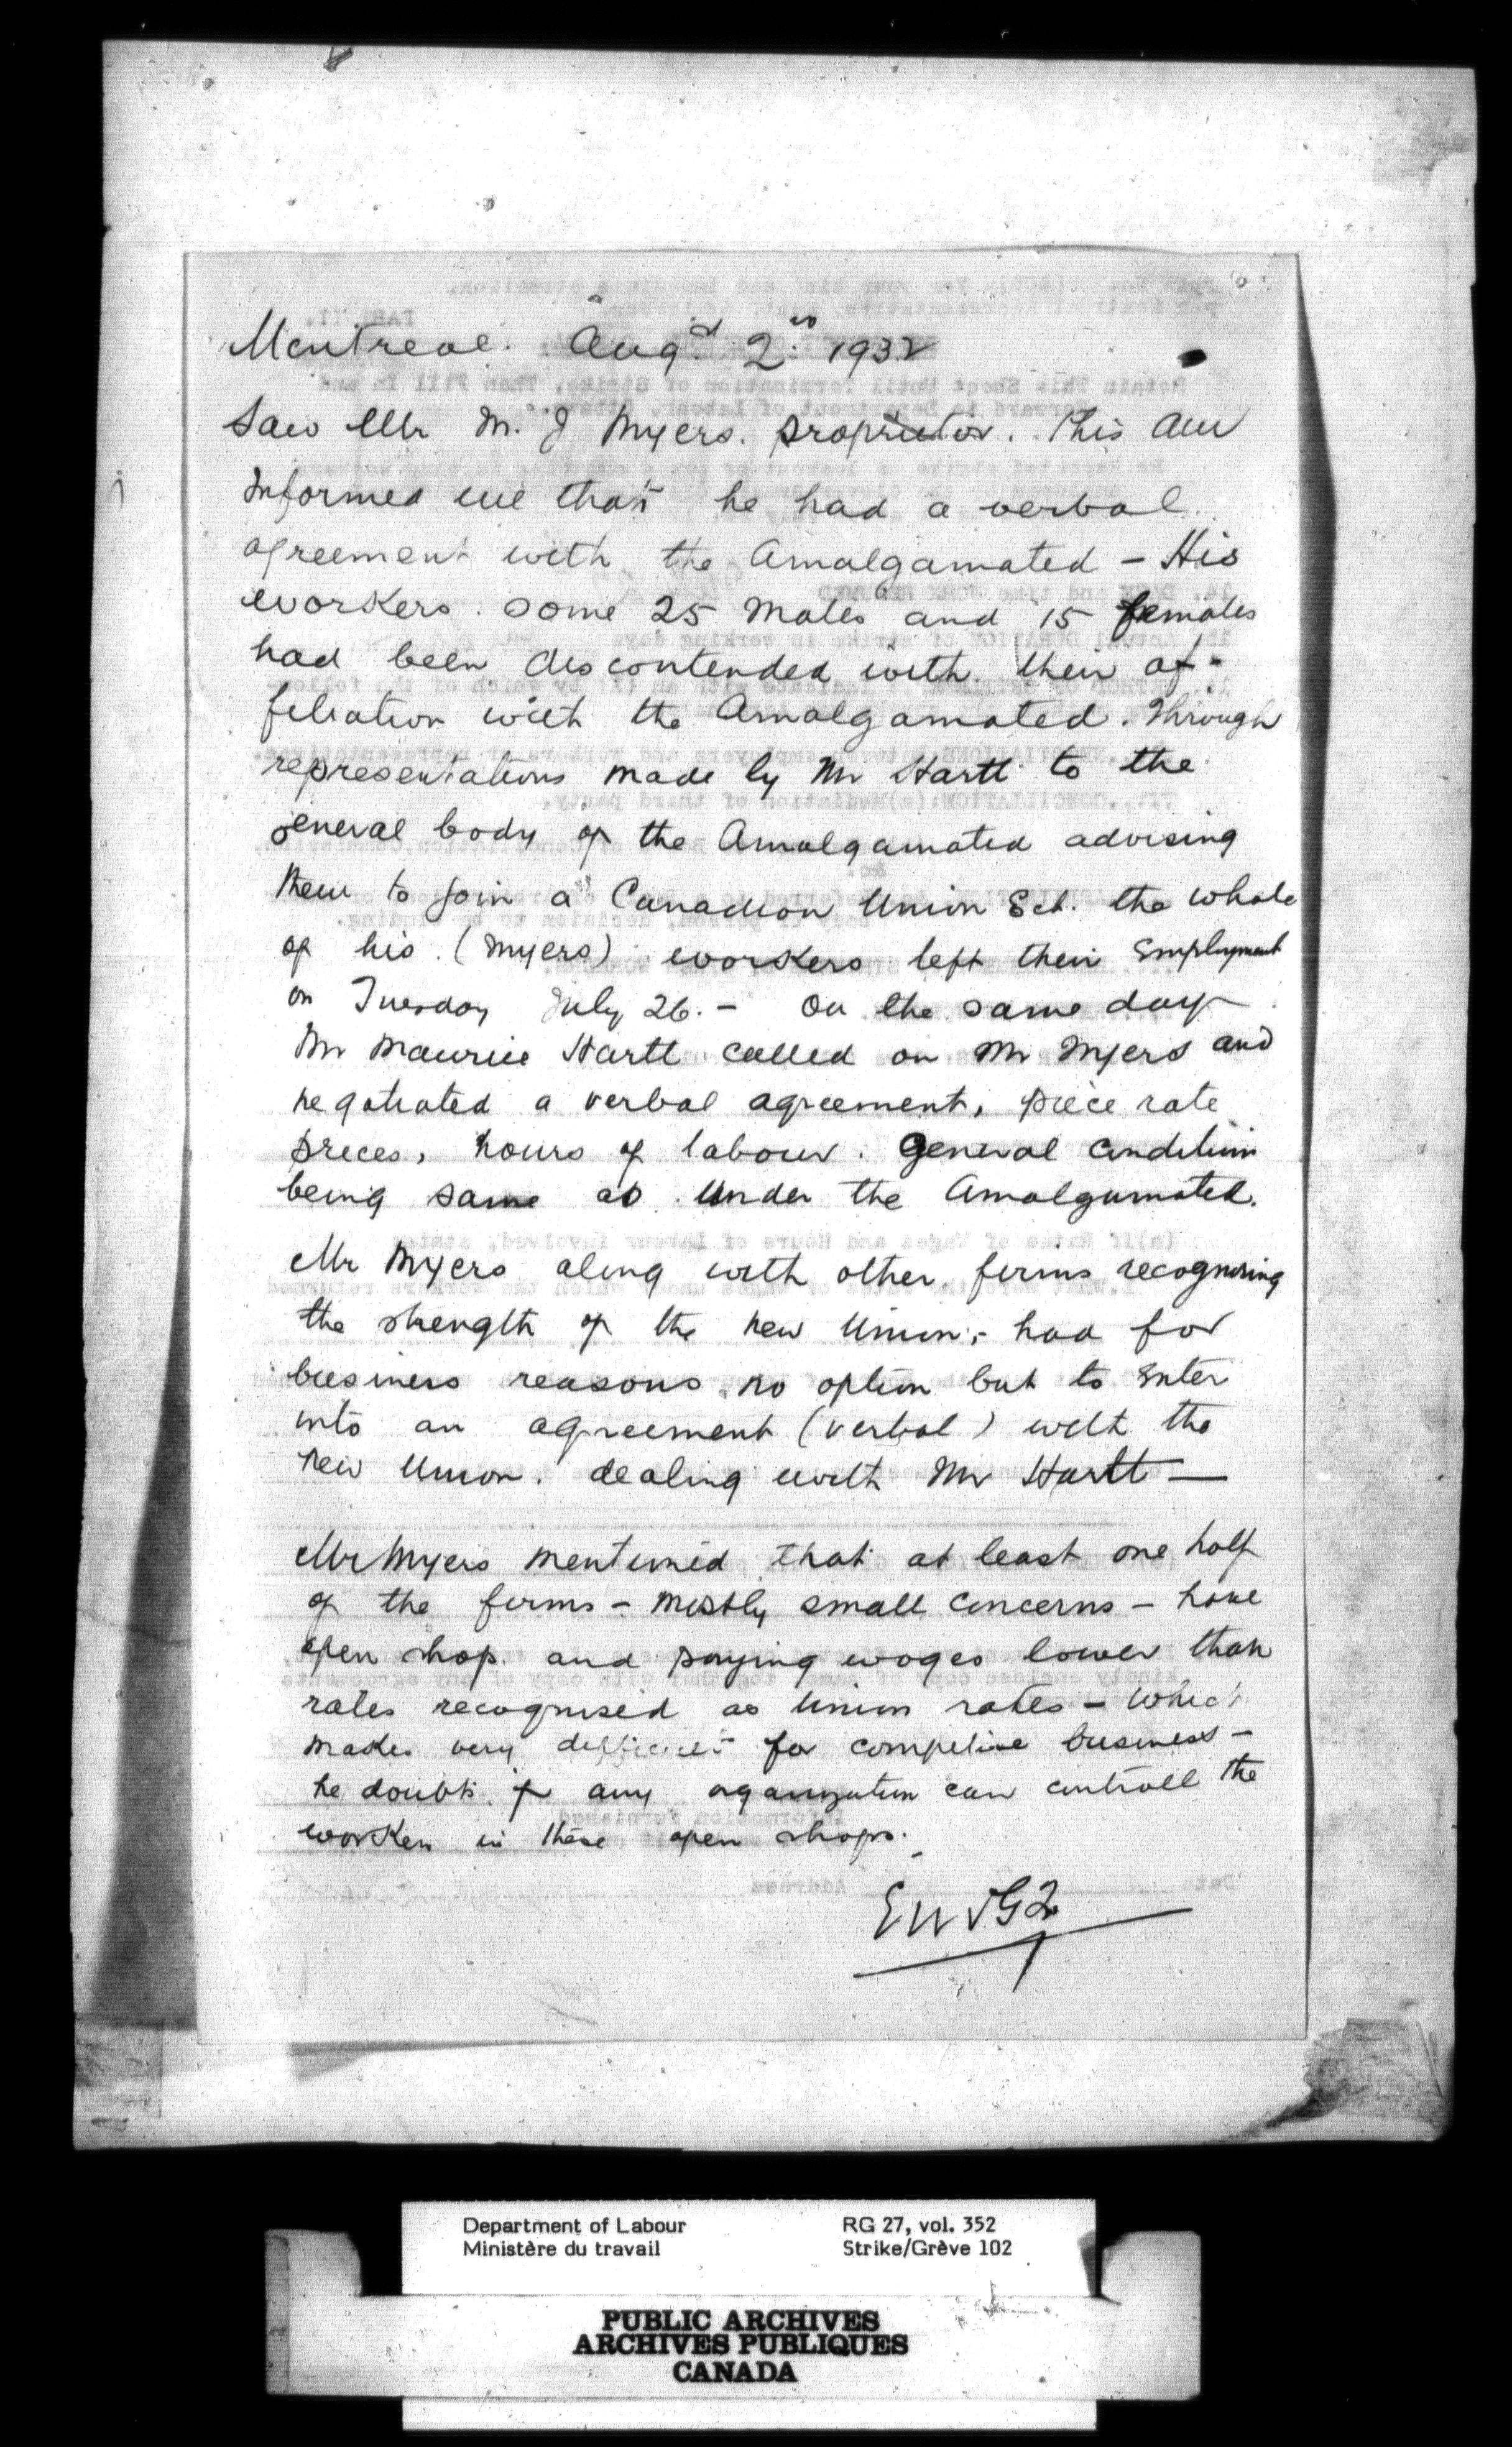 Montreal. Aug. 2. 1932
Saw Mr M. J Myers. proprietor. This am
Informed me that he had a verbal
agreement with the Amalgamated - His
workers. some 25 males and 15 females
had been discontended with their af-
filiation with the Amalgamated. Through
representations made by Mr Hartt to the
general body of the Amalgamated advising
them to join a Canadian Union Ect. the whole
of his (Myers) workers left their Employment
on Tuesday July 26. - On the same day
Mr Maurice Hartt called on Mr Myers and
negotiated a verbal agreement, piece rate
prices, hours of labour. General Condition
being same as under the Amalgamated.
Mr Myers along with other firms recognising
the strength of the new Union, - had for
business reasons no option but to Enter
into an agreement (verbal) with the
new Union. dealing with Mr Hartt —
Mr Myers mentioned that at least one half
of the firms - mostly small concerns - have
open shop. and paying wages lower than
rates recognised as Union rates - which
makes very difficult for competive business -
he doubts if any oganization can controll the
workers in these open shops.
Department of Labour
Ministère du travail
RG 27, vol. 352
Strike/Grève 102
PUBLIC ARCHIVES
ARCHIVES PUBLIQUES
CANADA